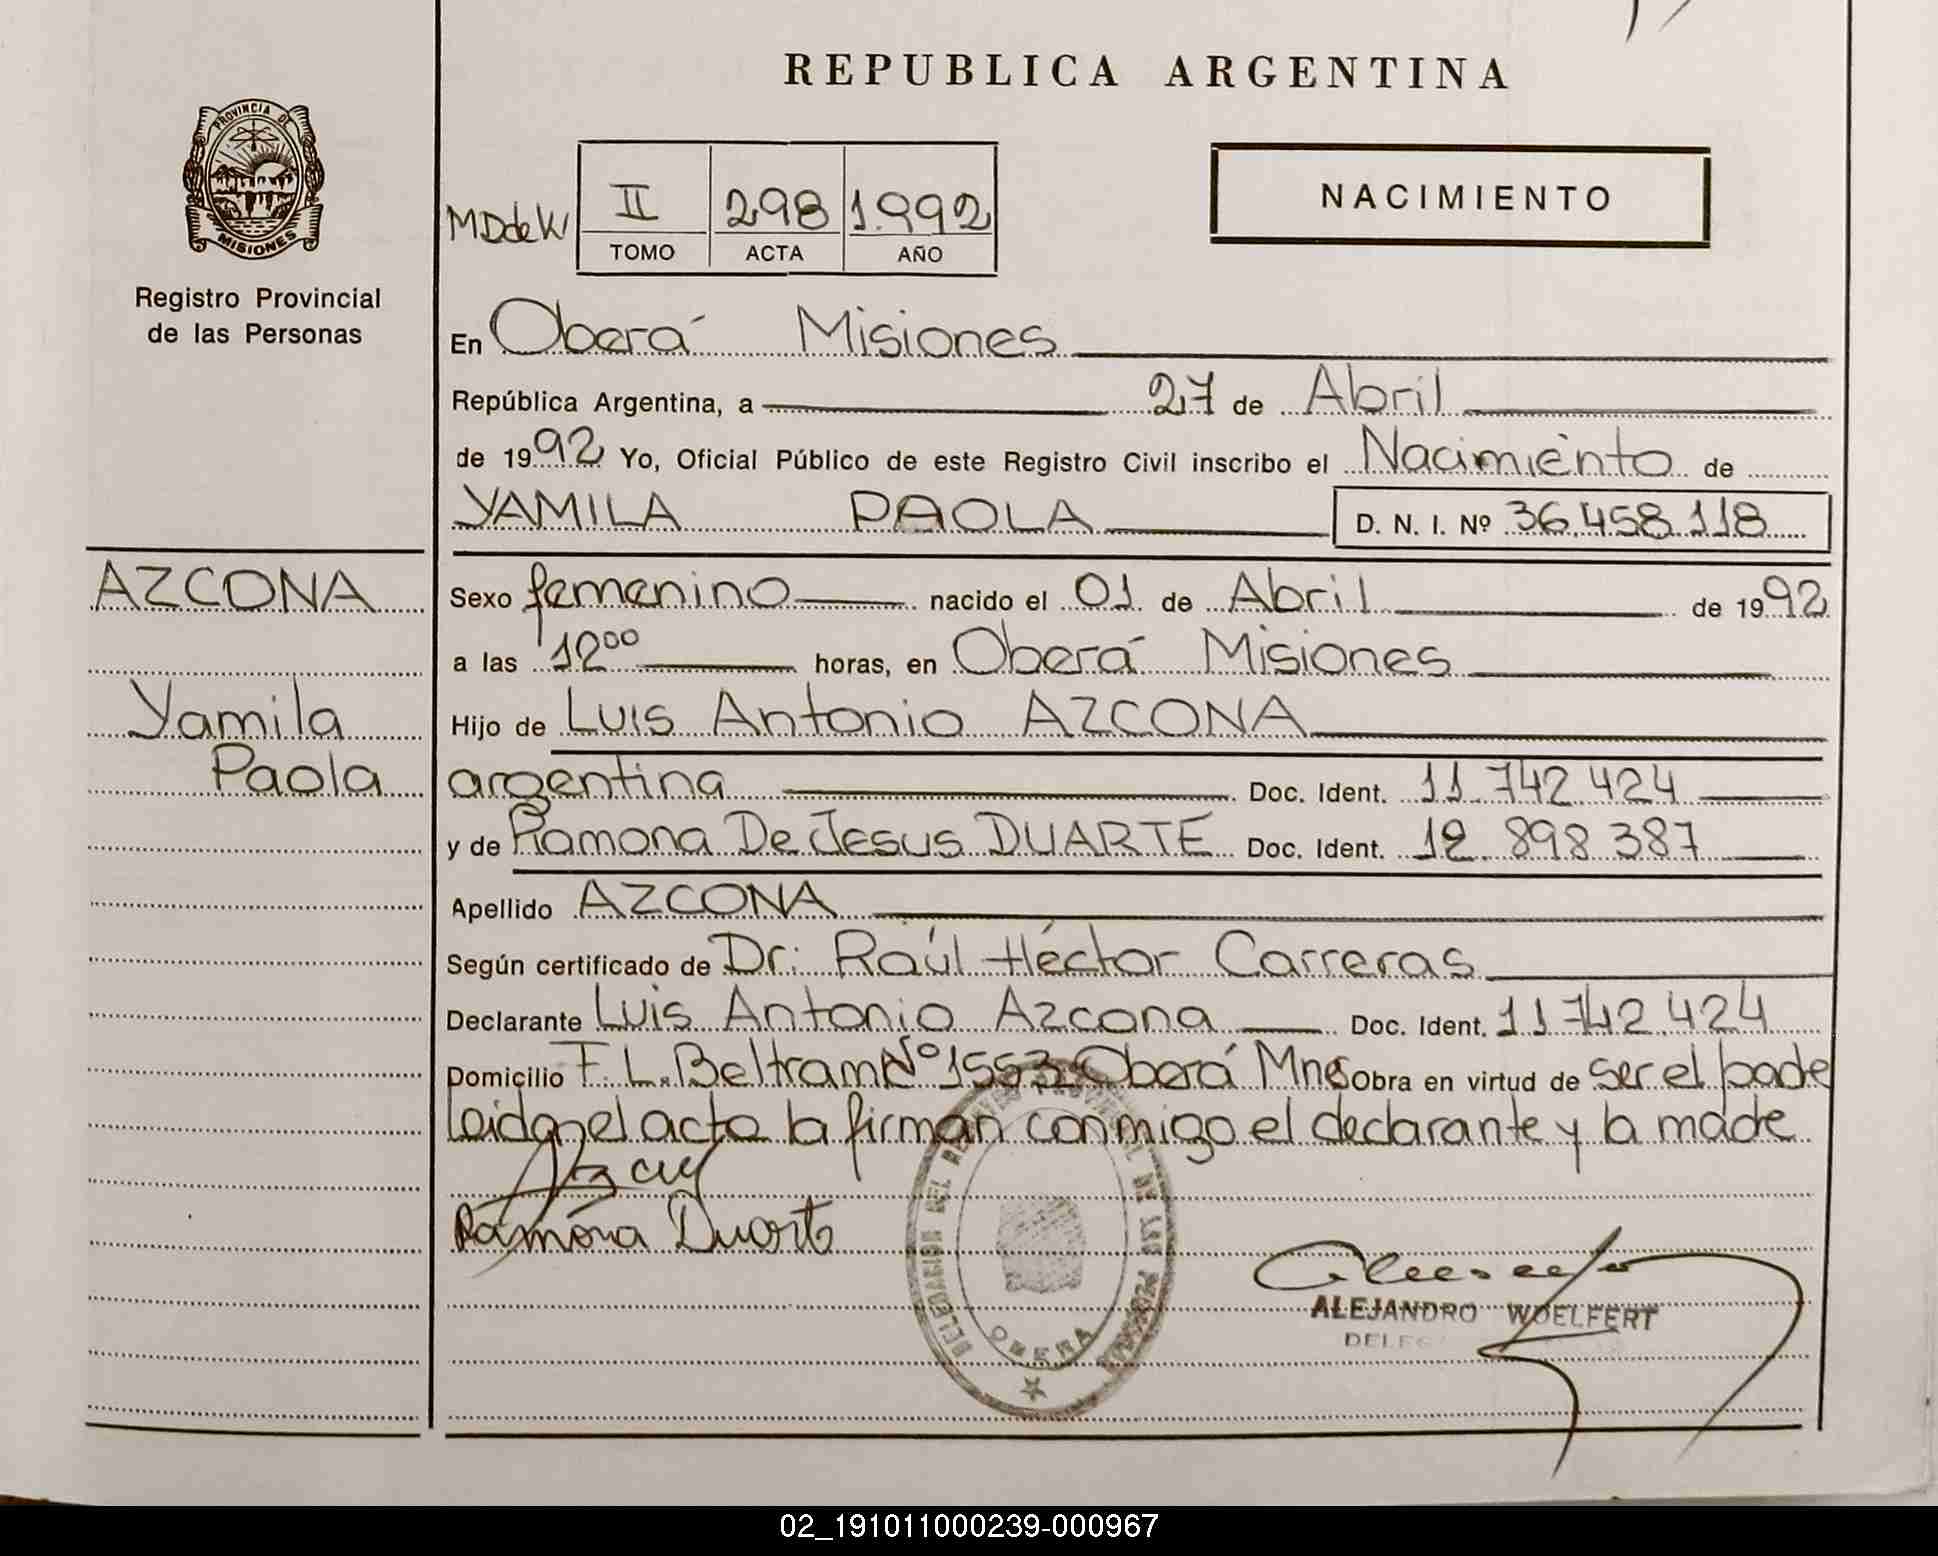 REPUBLICA ARGENTINA
PROVINCIA DE
MISIONES
Registro Provincial
de las Personas
NACIMIENTO
MDdeW
II 298 1.992
TOMO ACTA AÑO
En Oberá Misiones
República Argentina, a 27 de Abril
de 1992 Yo, Oficial Público de este Registro Civil inscribo el Nacimiento de
YAMILA PAOLA D. N. I. Nº 36.458.118
AZCONA
Yamila
Paola
Sexo femenino nacido el 01 de Abril de 1992
a las 12⁰⁰ horas, en Oberá Misiones
Hijo de Luis Antonio AZCONA
argentina Doc. Ident. 11.742.424
y de Ramona De Jesus DUARTE Doc. Ident. 12.898.387
Apellido AZCONA
Según certificado de Dr. Raúl Héctor Carreras
Declarante Luis Antonio Azcona Doc. Ident. 11.742.424
Domicilio F. L. Beltram Nº 1553 Oberá Mnes Obra en virtud de ser el padre
leida el acta la firman conmigo el declarante y la madre
Ramona Duarte
DELEGACION DEL REGISTRO PROVINCIAL DE LAS PERSONAS
OBERA
ALEJANDRO WOELFERT
02_191011000239-000967